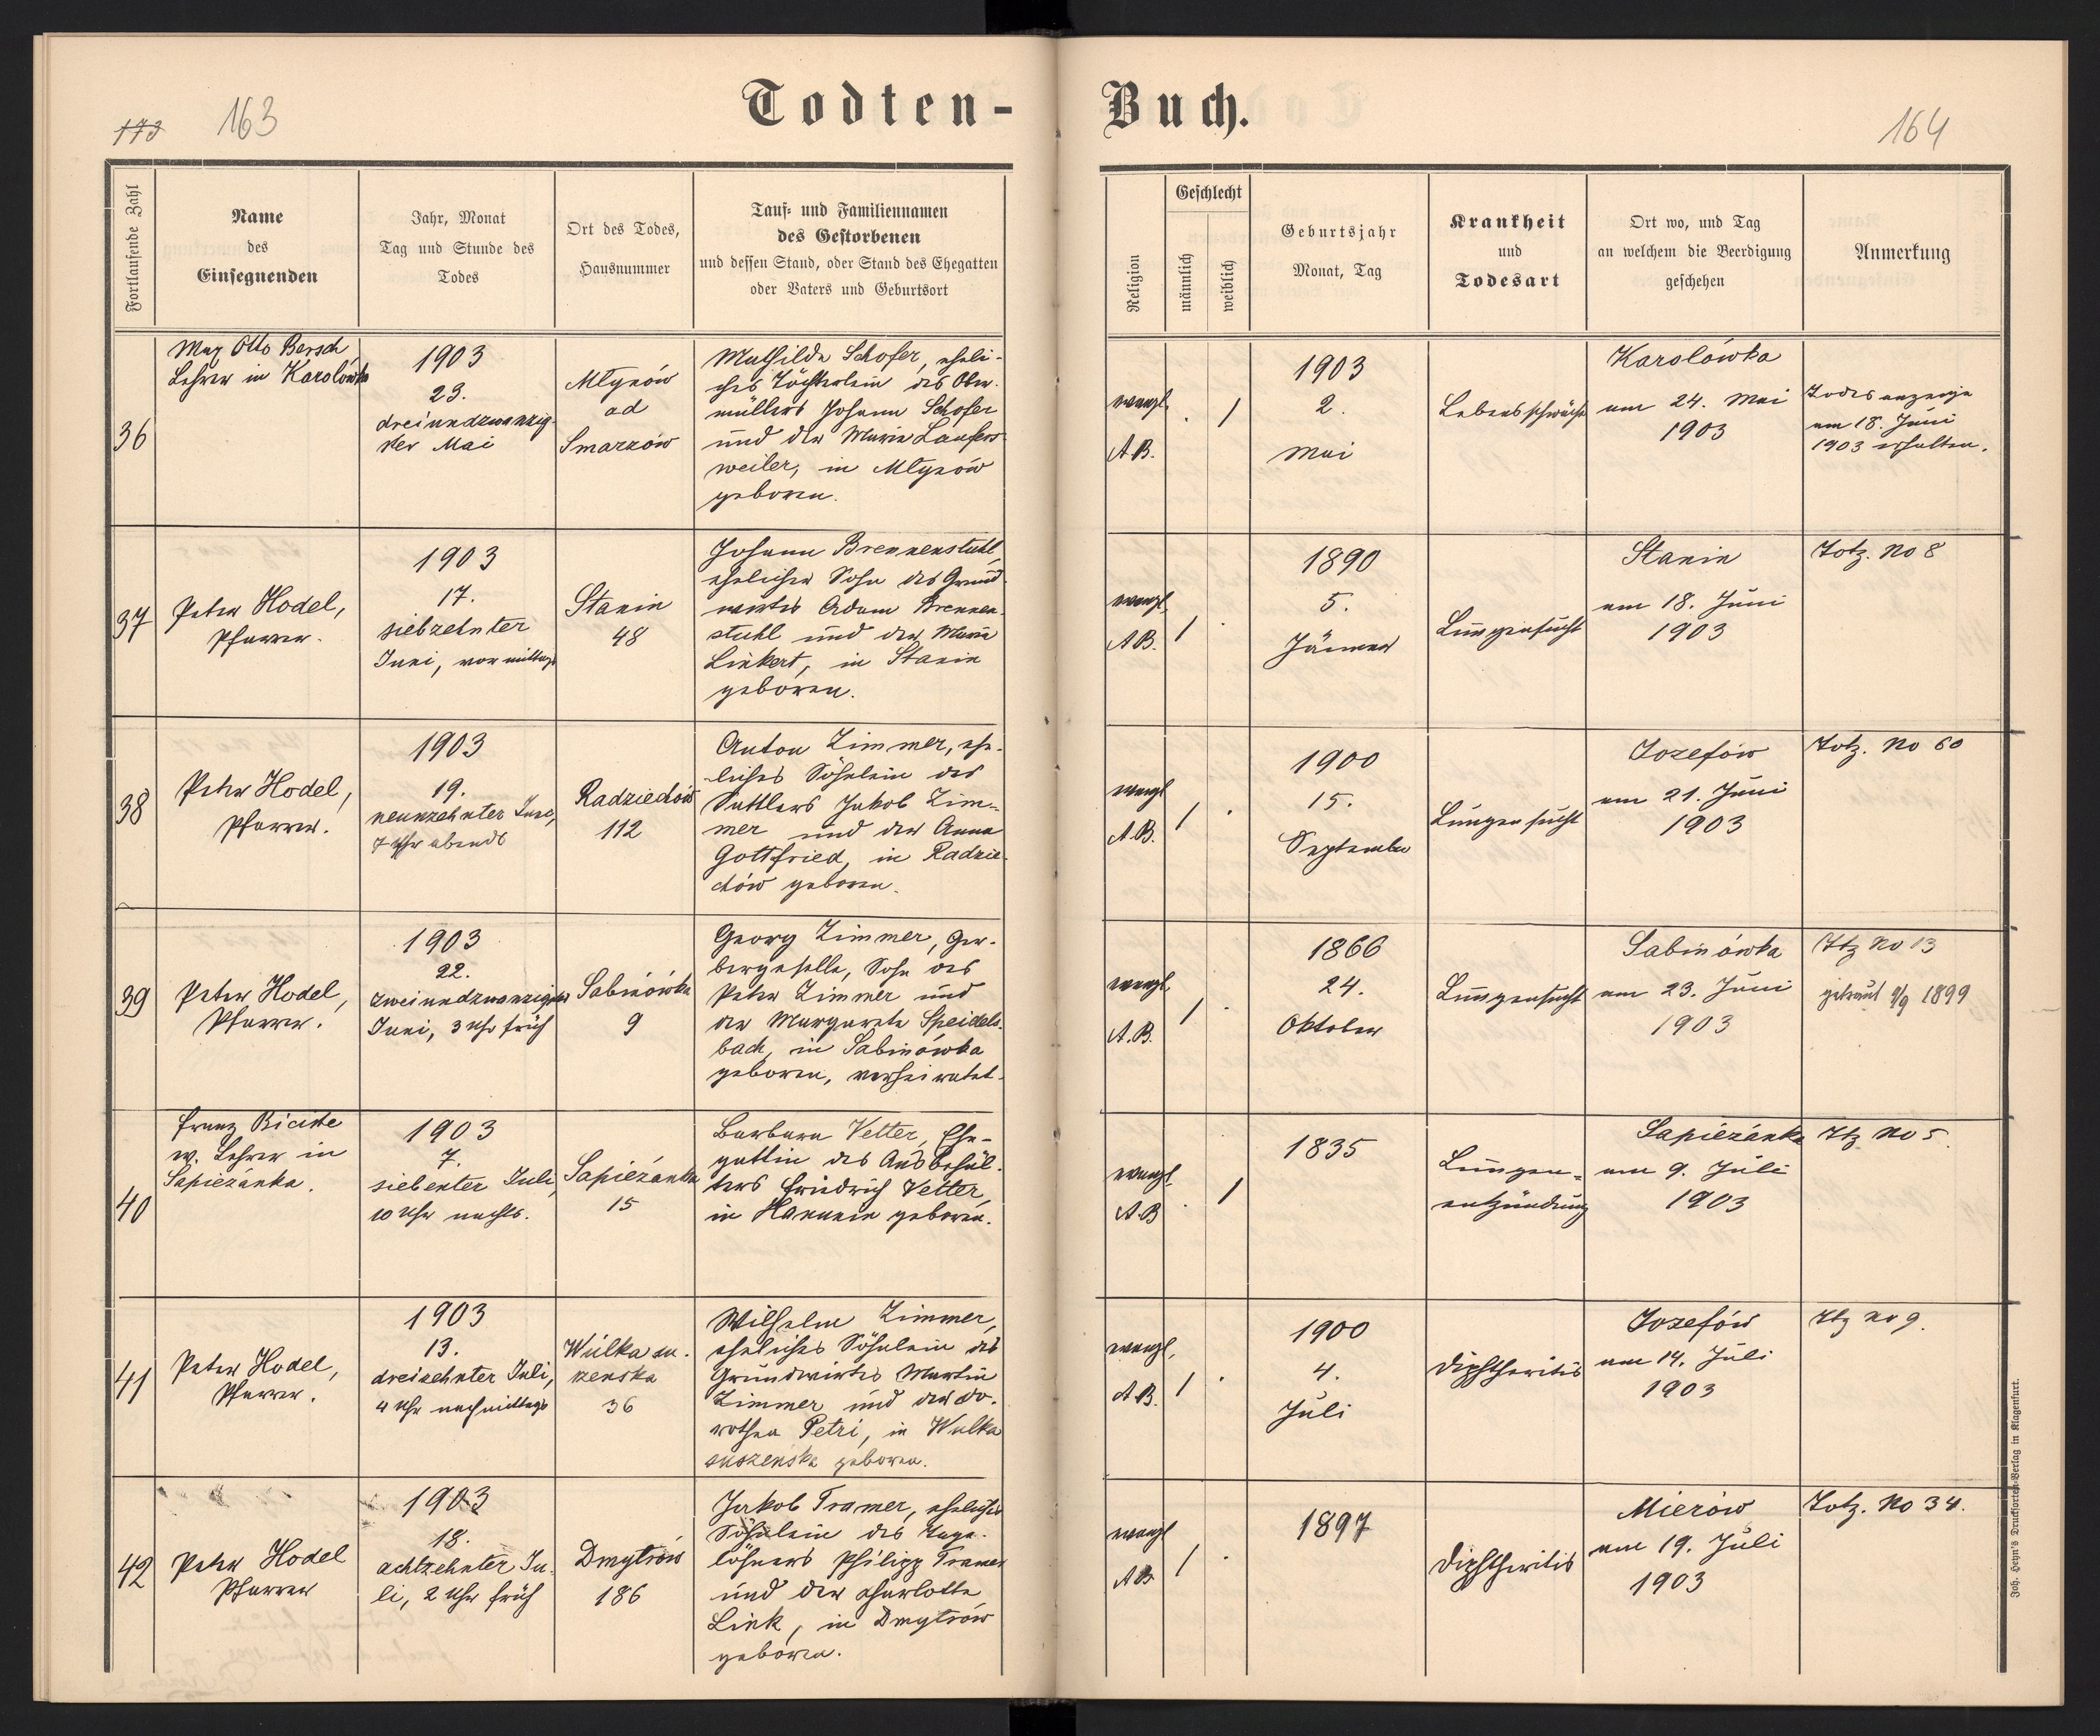 173 163
Todten-
Fortlaufende Zahl
Name
des
Einsegnenden
Jahr, Monat
Tag und Stunde des
Todes
Ort des Todes,
Hausnummer
Tauf- und Familiennamen
des Gestorbenen
und dessen Stand, oder Stand des Ehegatten
oder Vaters und Geburtsort
36
Max Otto Bersch,
Lehrer in Karolówka
1903
23.
dreiundzwanzig-
ster Mai
Młynów
ad
Smarzów
Mathilde Schofer, eheli-
ches Töchterlein des Ober-
müllers Johann Schofer
und der Maria Laufers-
weiler, in Młynów
geboren.
37
Peter Hodel,
Pfarrer.
1903
17.
siebzehnter
Juni, vormittags
Stanin
48
Johann Brennenstuhl,
ehelicher Sohn des Grund-
wirtes Adam Brennen-
stuhl und der Maria
Linkert, in Stanin
geboren.
38
Peter Hodel,
Pfarrer.
1903
19.
neunzehnter Juni,
7 Uhr abends
Radziechów
112
Anton Zimmer, ehe-
liches Söhnlein des
Sattlers Jakob Zim-
mer und der Anna
Gottfried, in Radzie-
chów geboren.
39
Peter Hodel,
Pfarrer.
1903
22.
zweiundzwanzigster
Juni, 3 Uhr früh
Sabinówka
9
Georg Zimmer, Ger-
bergeselle, Sohn des
Peter Zimmer und
der Margarete Speidels-
bach, in Sabinówka
geboren, verheiratet.
40
Franz
ev. Lehrer in
Sapiezánka.
1903
7.
siebenter Juli,
10 Uhr nachts.
Sapiezánka
15
Barbara Vetter, Ehe-
gattin des Ausbehäl-
ters Friedrich Vetter,
in Hanunin geboren.
41
Peter Hodel,
Pfarrer.
1903
13.
dreizehnter Juli,
4 Uhr nachmittags
Wulka su-
zenska
36
Wilhelm Zimmer,
eheliches Söhnlein des
Grundwirtes Martin
Zimmer und der Do-
rothea Petri, in Wulka
suszenska geboren.
42
Peter Hodel
Pfarrer
1903
18.
achtzehnter Ju-
li, 2 Uhr früh
Dmytrów
186
Jakob Tramer, eheliches
Söhnlein des Tage-
löhners Philipp Tramer
und der Charlotte
Link, in Dmytrów
geboren.
Buch.
164
Religion
Geschlecht
männlich
weiblich
Geburtsjahr
Monat, Tag
Krankheit
und
Todesart
Ort wo, und Tag
an welchem die Beerdigung
geschehen
Anmerkung
evangl.
A.B.
. 1
1903
2.
Mai
Lebensschwäche
Karolówka
am 24. Mai
1903
Todesanzeige
am 18. Juni
1903 erhalten.
evangl.
A.B.
1 .
1890
5.
Jänner
Lungensucht
Stanin
am 18. Juni
1903
Totz. No 8
evangl
A.B.
1 .
1900
15.
September
Lungensucht
Jozefów
am 21. Juni
1903
Totz. No 60
evangl.
A.B.
1 .
1866
24.
Oktober
Lungensucht
Sabinówka
am 23. Juni
1903
Ttz No 13
getraut 2/9 1899
evangl.
A.B
. 1
1835
Lungen-
entzündung
Sapiezánka
am 9. Juli
1903
Ttz No 5.
evangl.
A.B.
1 .
1900
4.
Juli
Diphtheritis
Jozefów
am 14. Juli
1903
Ttz No 9.
evangl
A.B.
1 .
1897
Diphtheritis
Mierów
am 19. Juli
1903
Totz. No 34.
Joh. Heyn's Drucksorten-Verlag in Klagenfurt.